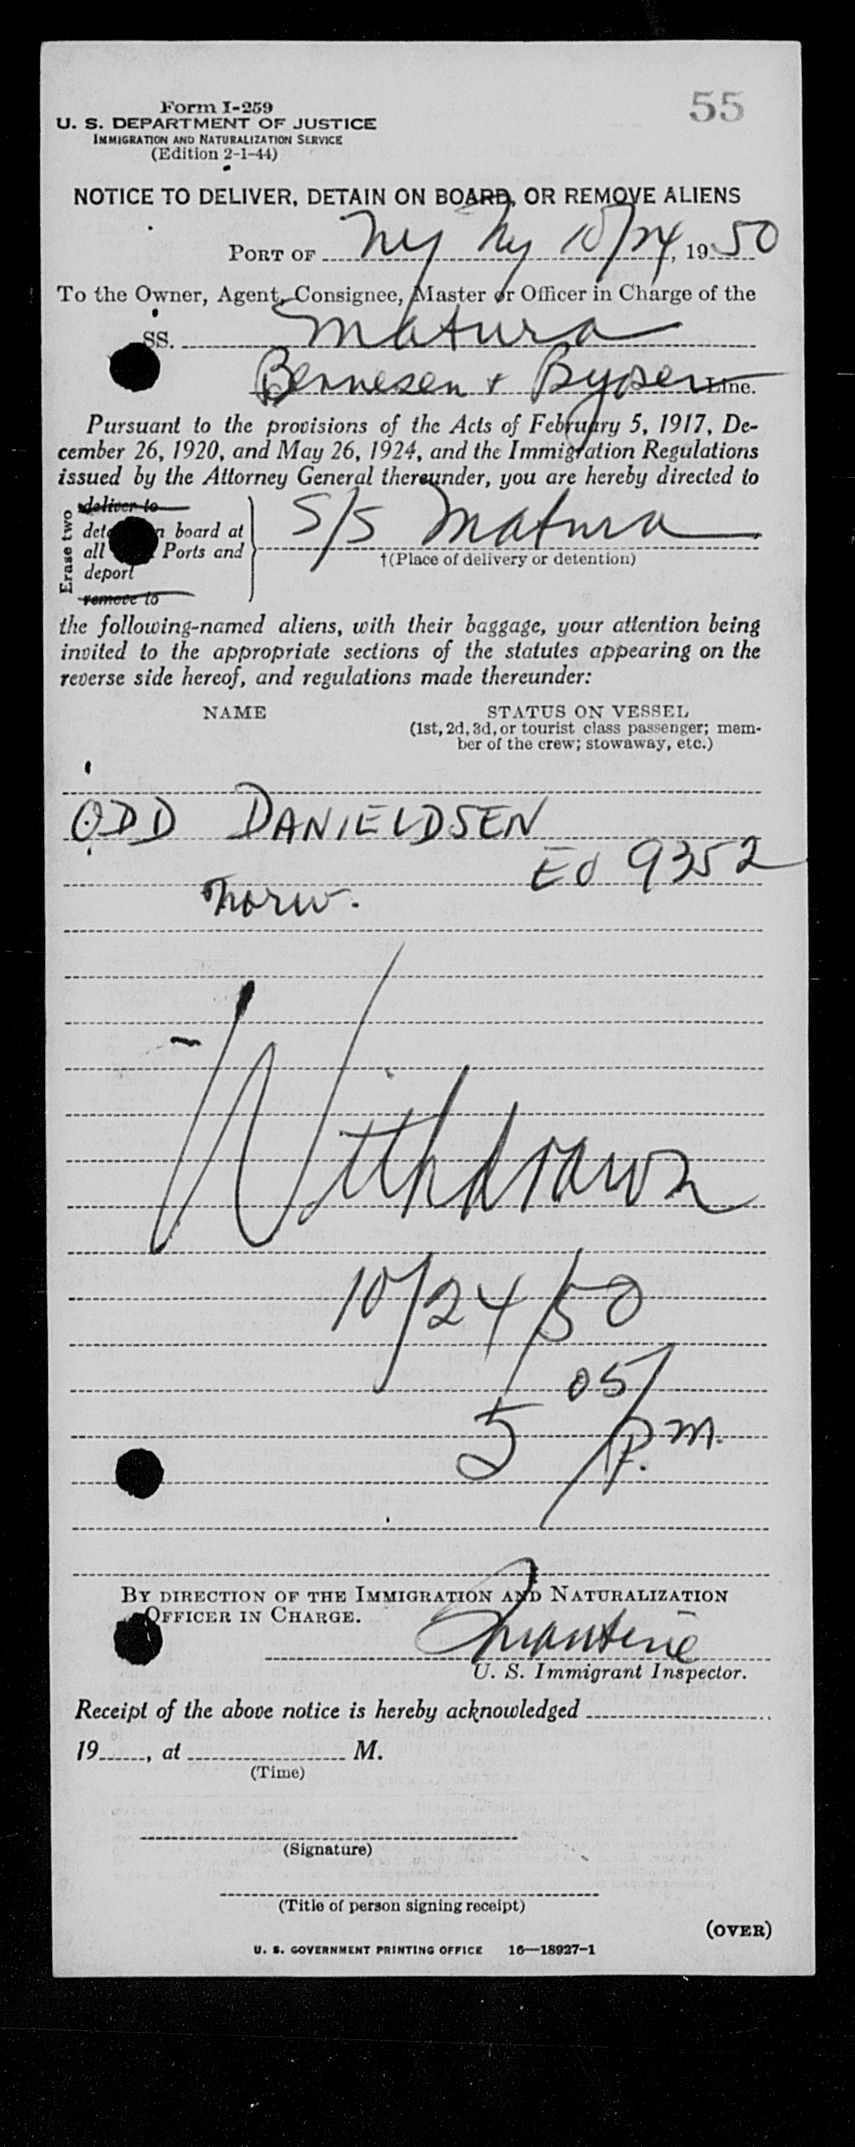 55
Form I-259
U. S. DEPARTMENT OF JUSTICE
IMMIGRATION AND NATURALIZATION SERVICE
(Edition 2-1-44)
NOTICE TO DELIVER, DETAIN ON BOARD, OR REMOVE ALIENS
PORT OF NY NY 10/24, 1950
To the Owner, Agent, Consignee, Master or Officer in Charge of the
SS. Matura
Bennesen + Line.
Pursuant to the provisions of the Acts of February 5, 1917, De-
cember 26, 1920, and May 26, 1924, and the Immigration Regulations
issued by the Attorney General thereunder, you are hereby directed to
Erase two
deliver to
on board at
all Ports and
deport
remove to
S/S Matura
†(Place of delivery or detention)
the following-named aliens, with their baggage, your attention being
invited to the appropriate sections of the statutes appearing on the
reverse side hereof, and regulations made thereunder:
NAME STATUS ON VESSEL
(1st, 2d, 3d, or tourist class passenger; mem-
ber of the crew; stowaway, etc.)
ODD DANIELDSEN
EO 9352
Norw.
Withdrawn
10/24/50
5 05/P.M.
BY DIRECTION OF THE IMMIGRATION AND NATURALIZATION
OFFICER IN CHARGE.
U. S. Immigrant Inspector.
Receipt of the above notice is hereby acknowledged
19 , at M.
(Time)
(Signature)
(Title of person signing receipt)
(OVER)
U. S. GOVERNMENT PRINTING OFFICE 16—18927-1